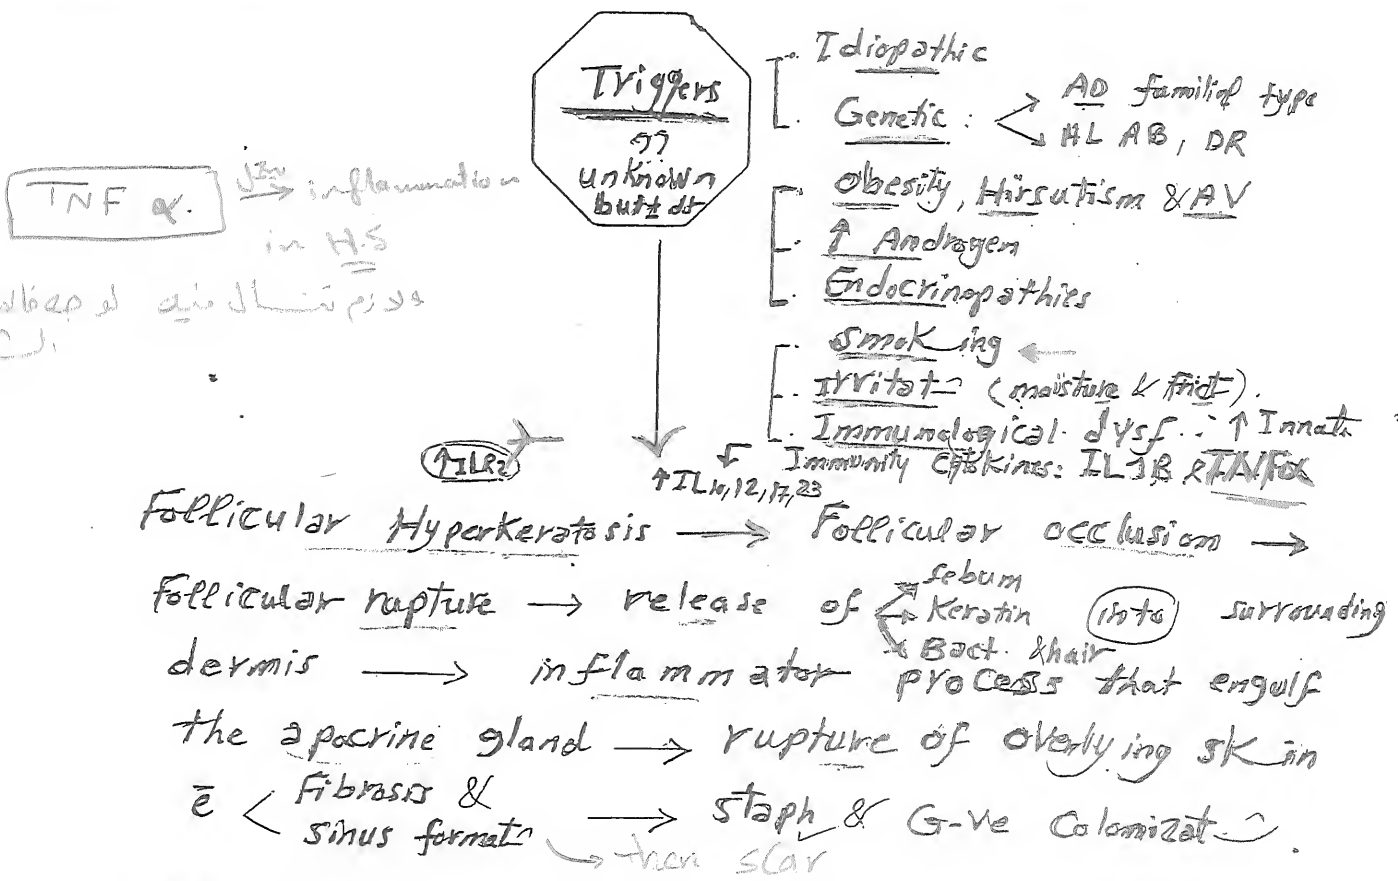 Triggers
??
unknown
but ± dt
Idiopathic
Genetic :
AD familial type
HL AB, DR
Obesity, Hirsutism & AV
↑ Androgen
Endocrinopathies
smoking ←
Irritat⁼ (moisture & frict⁼).
Immunological dysf. : ↑ Innate
Immunity cytokines: IL 1B & TNFα
TNF α. → inflammation
in H.S
ولازم تسأل فيه لو
↑ILR2
↑IL10,12,17,23
Follicular Hyperkeratosis → Follicular occlusion →
Follicular rupture → release of
sebum
Keratin
Bact. & hair
into surrounding
dermis → inflammator process that engulf
the apocrine gland → rupture of overlying skin
ē < Fibrosis &
sinus formatn
→ staph & G-ve Colonizat⁼.
→ then scar